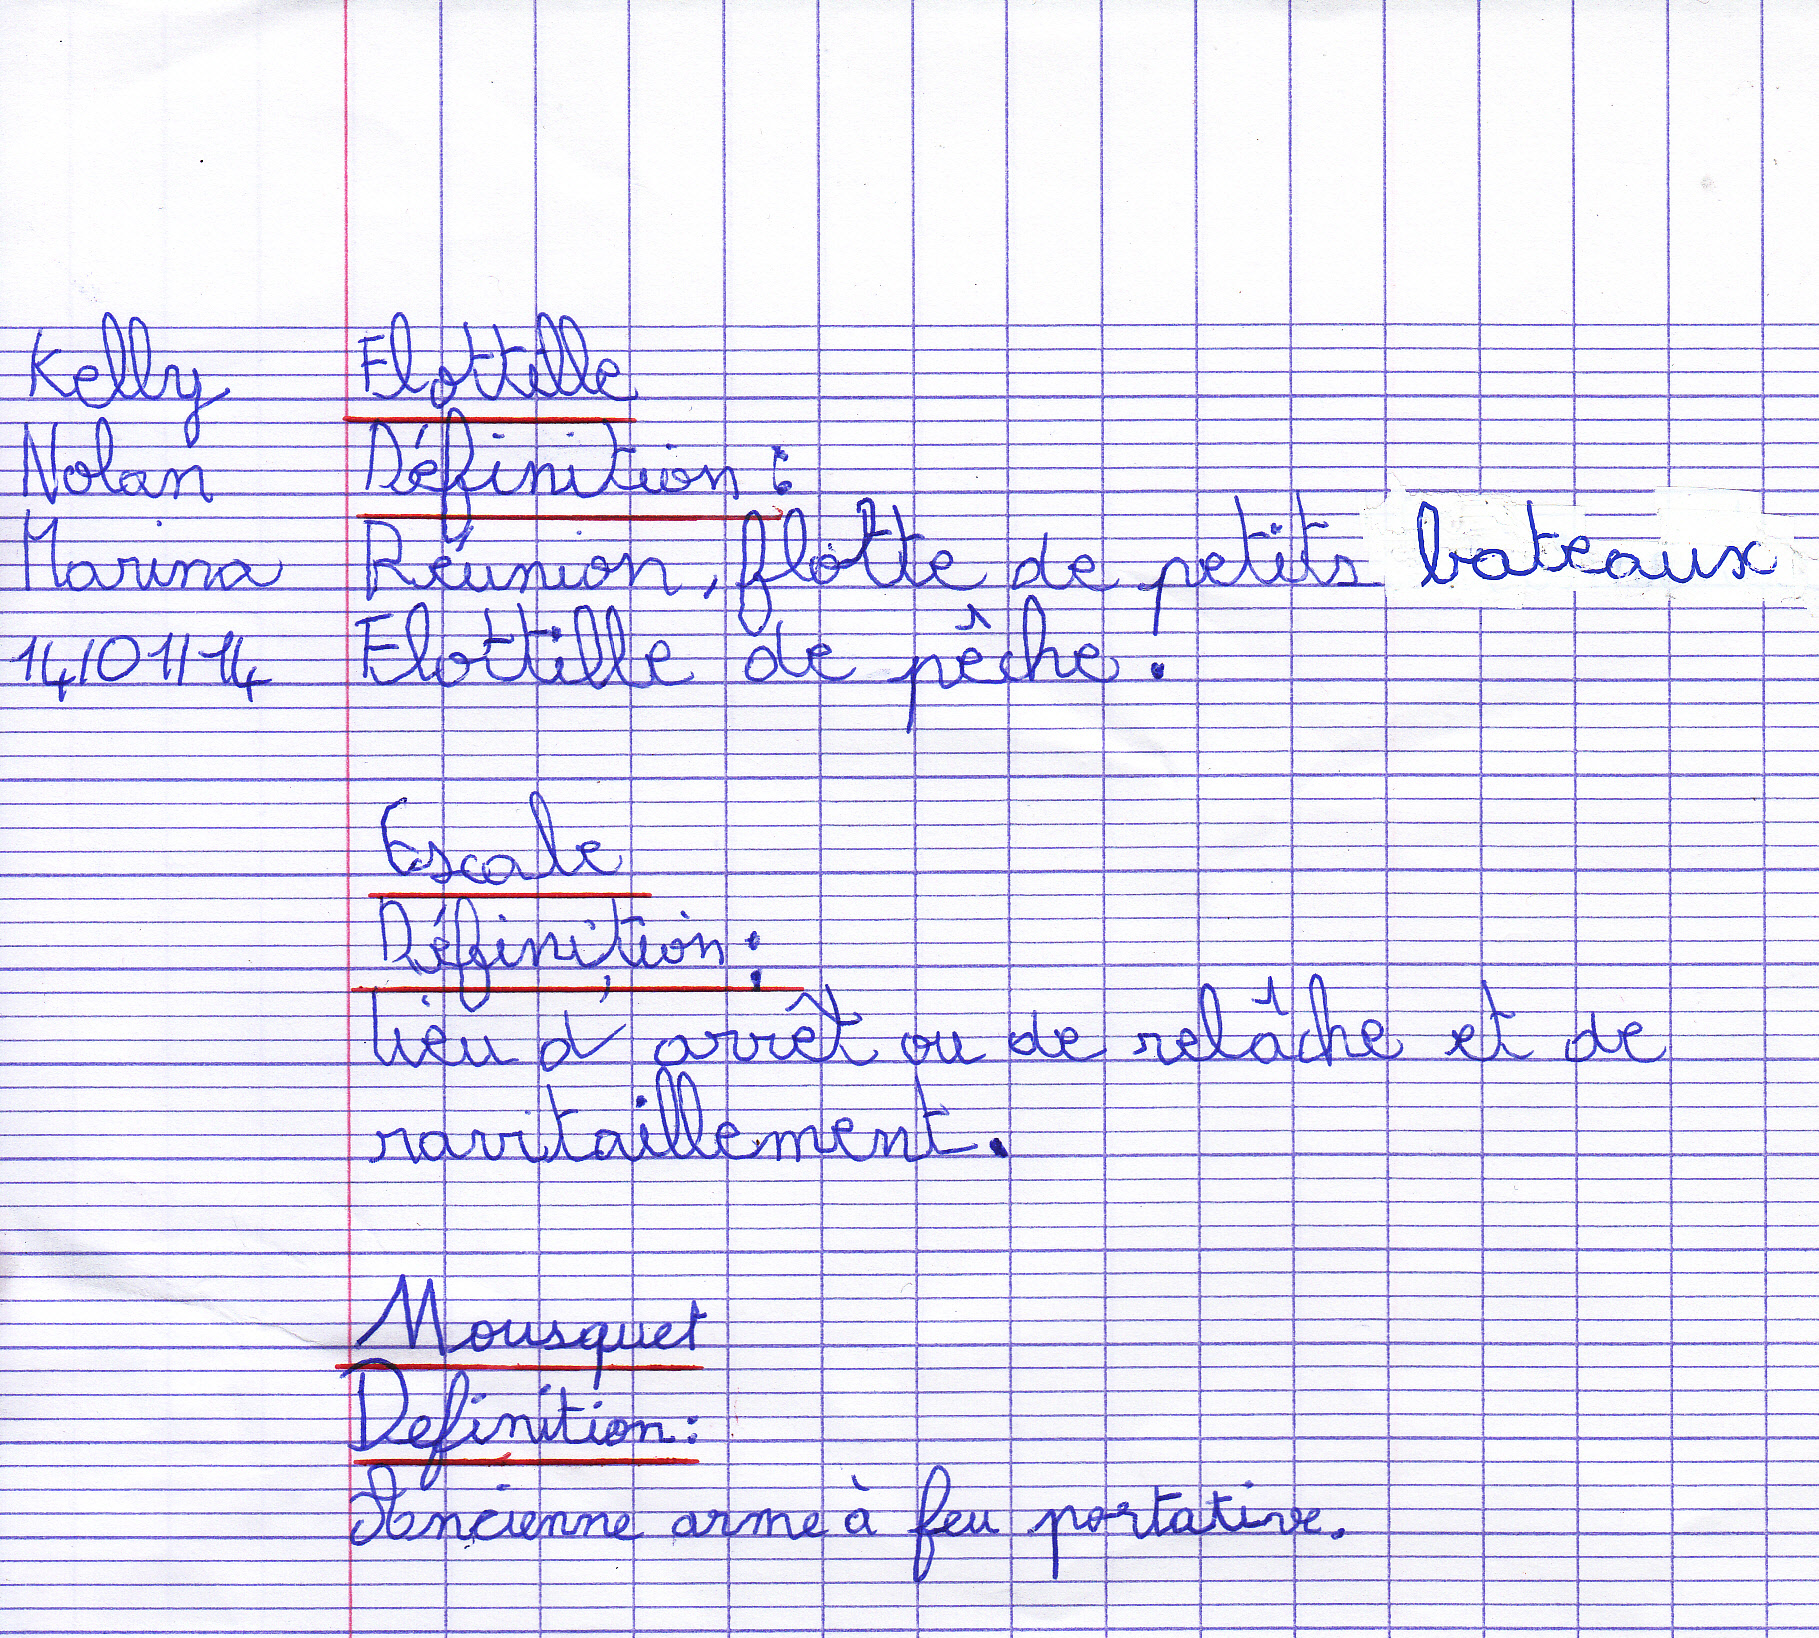 Kelly
Nolan
Marina
14/01/14
Flottille
Définition :
Réunion, flotte de petits bateaux
Flottille de pêche.
Escale
Définition :
lieu d'arrêt ou de relâche et de
ravitaillement.
Mousquet
Definition :
Ancienne arme à feu portative.